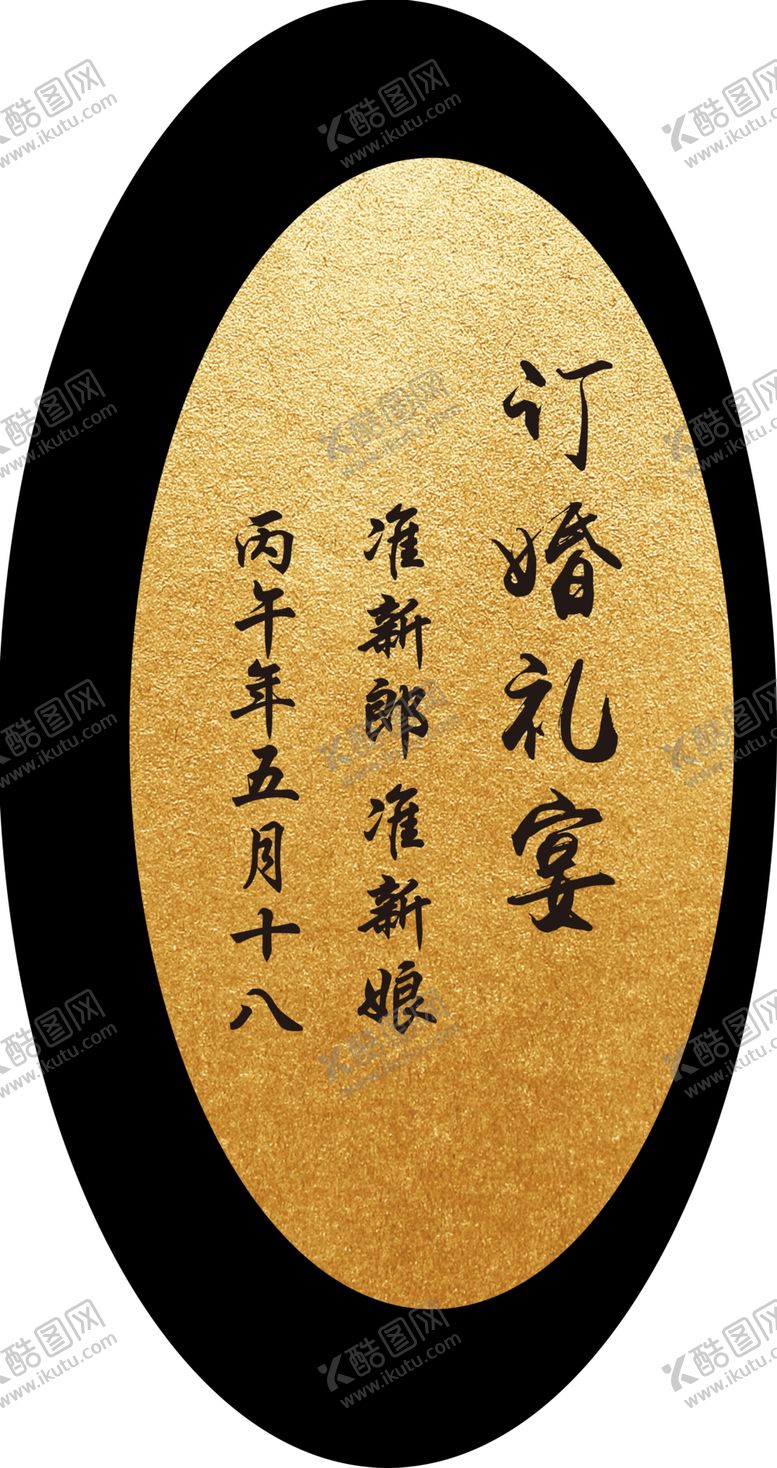 订婚礼宴
准新郎准新娘
丙午年五月十八
酷图网
www.ikutu.com